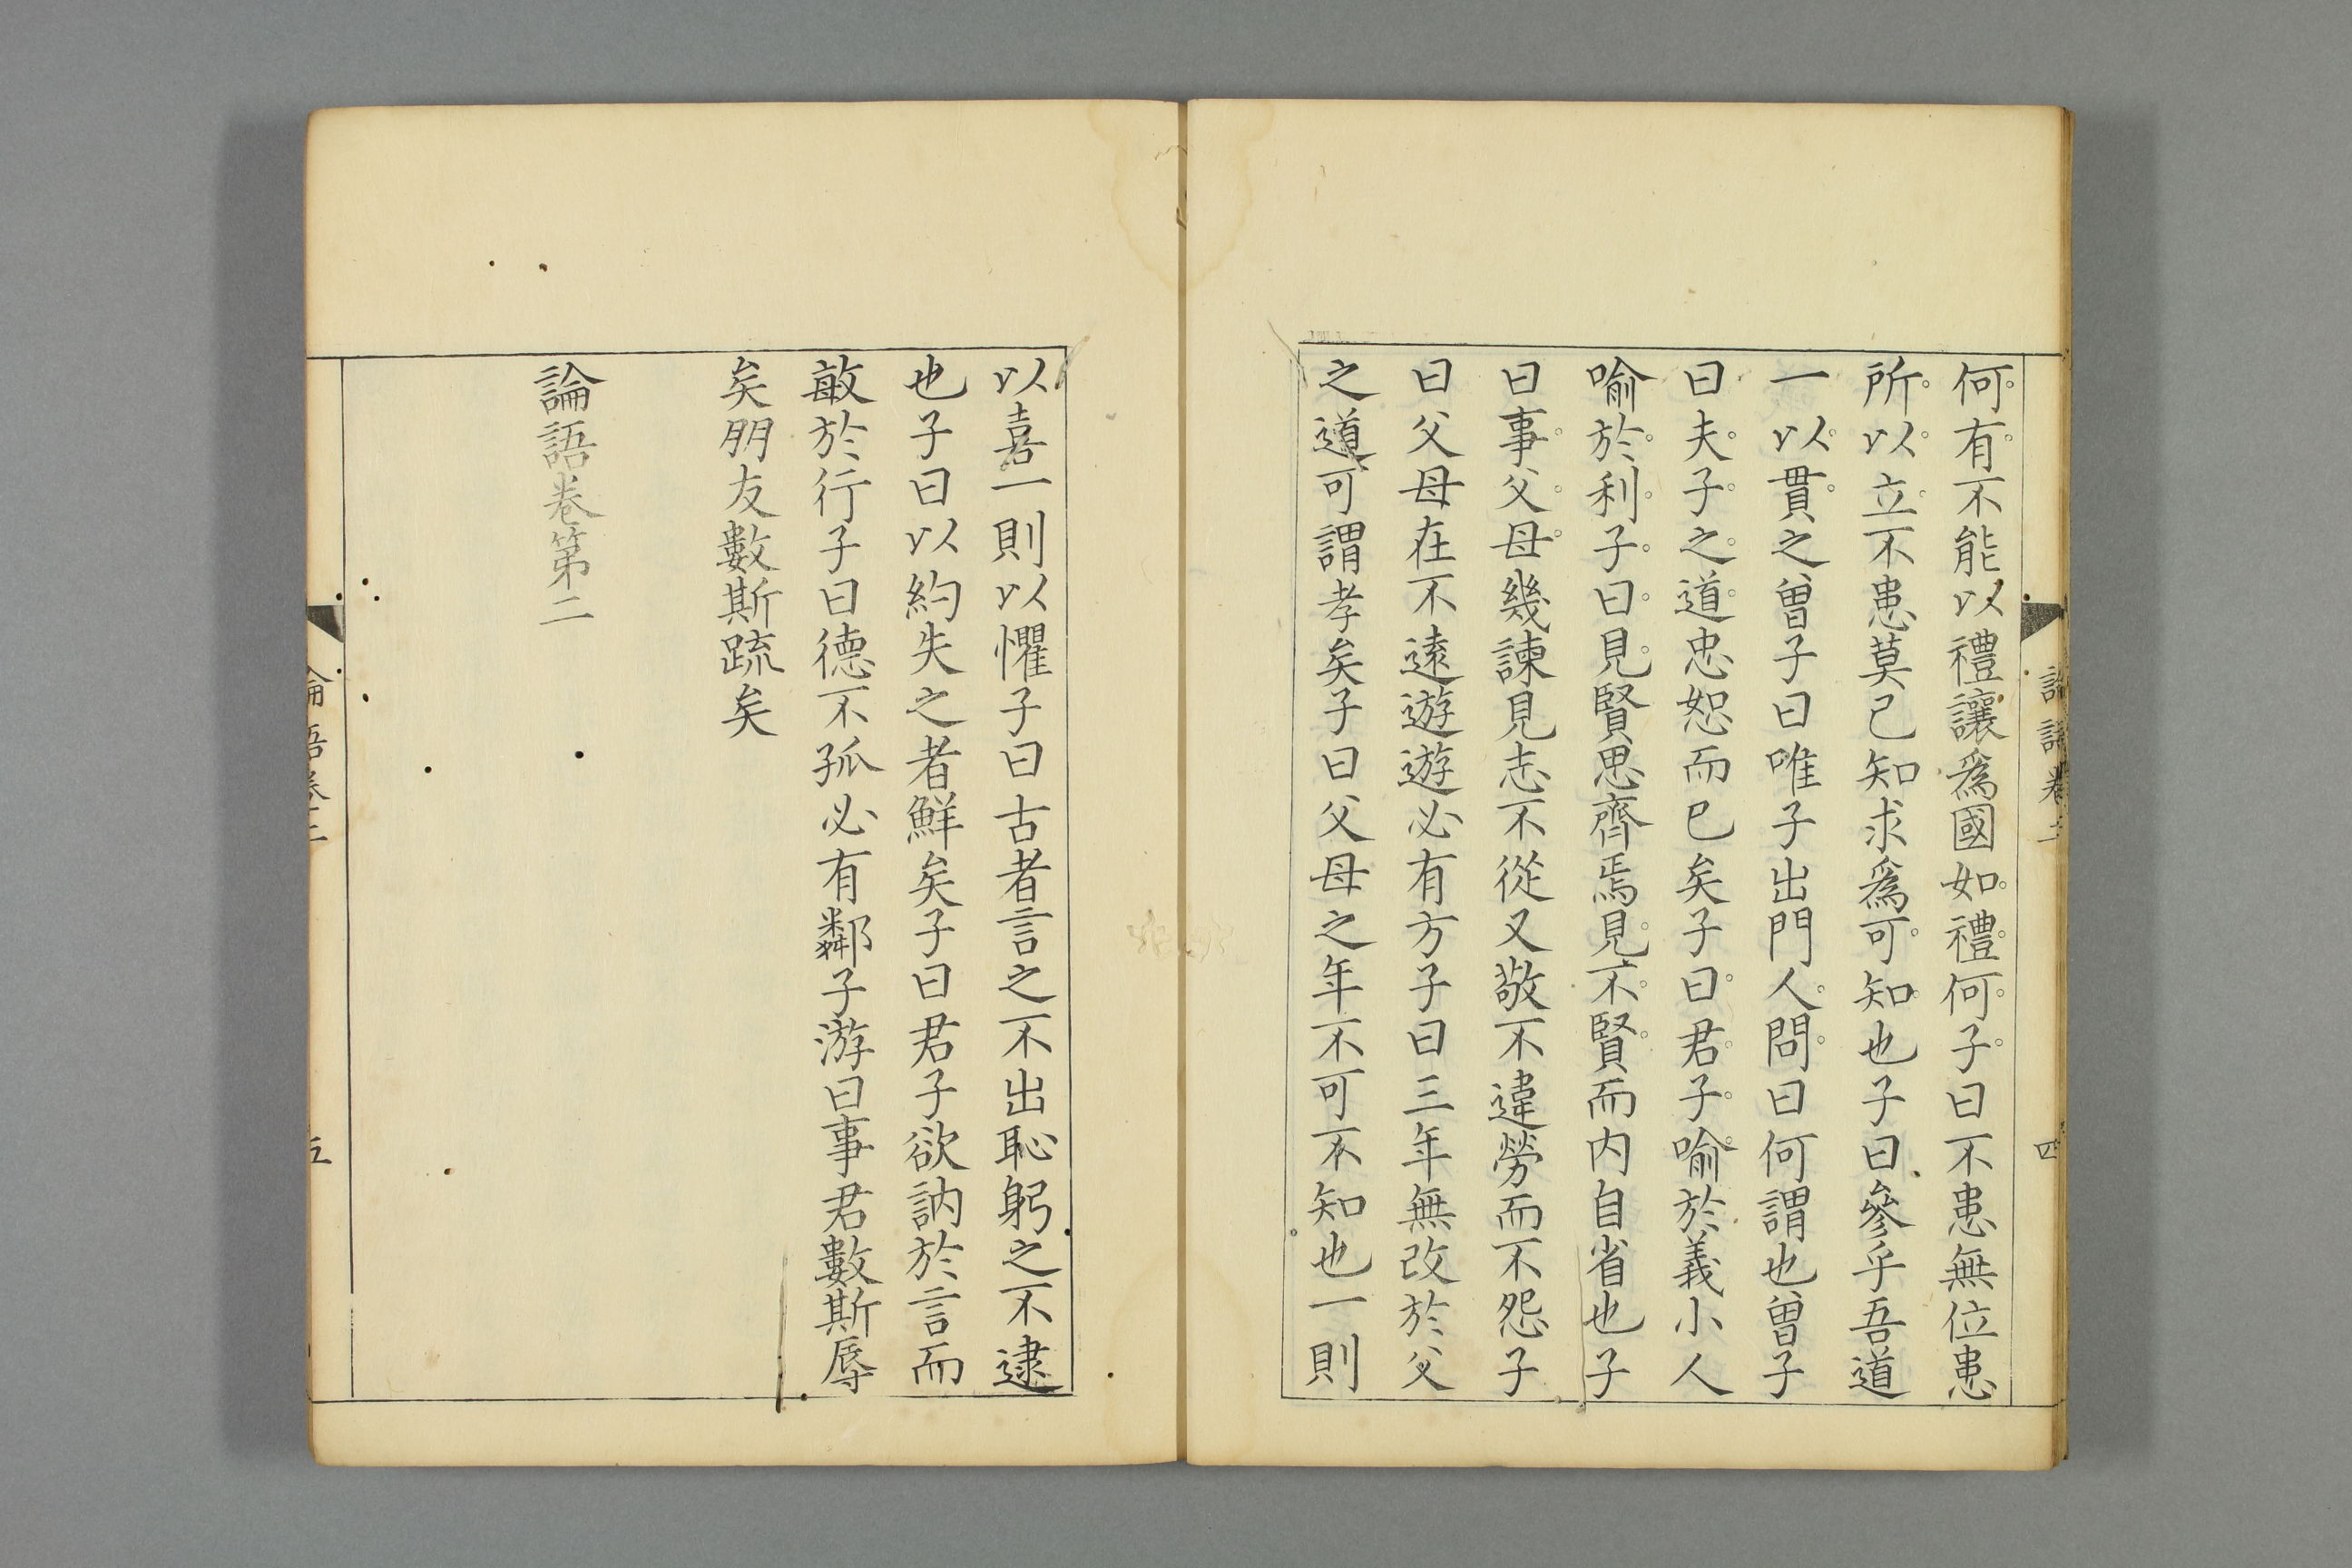 何有不能以禮讓爲國如禮何子曰不患無位患
所以立不患莫己知求爲可知也子曰參乎吾道
一以貫之曽子曰唯子出門人問曰何謂也曽子
曰夫子之道忠恕而已矣子曰君子喻於義小人
喻於利子曰見賢思齊焉見不賢而内自省也子
曰事父母幾諫見志不從又敬不違勞而不怨子
曰父母在不遠遊遊必有方子曰三年無改於父
之道可謂孝矣子曰父母之年不可不知也一則
以喜一則以懼子曰古者言之不出恥躬之不逮
也子曰以約失之者鮮矣子曰君子欲訥於言而
敏於行子曰德不孤必有鄰子游曰事君數斯辱
矣朋友數斯疏矣
論語卷第二
論語卷二
五
論語卷二
四